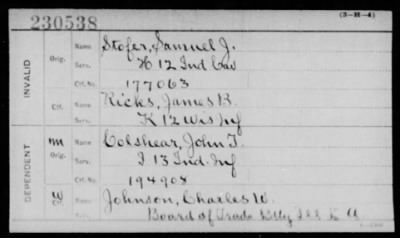 230538
(3-H-4)
INVALID
Orig.
Name Stofer, Samuel J.
Serv. H 12 Ind Cav
Ctf. No. 177063
Ctf.
Name Ricks, James R.
Serv. K 12 Wis Inf
DEPENDENT
M
Orig.
Name Colshear, John T.
Serv. I 13 Ind. Inf
Ctf. No. 194908
W
Ctf.
Name Johnson, Charles W.
Board of Trade Btty Ill L A